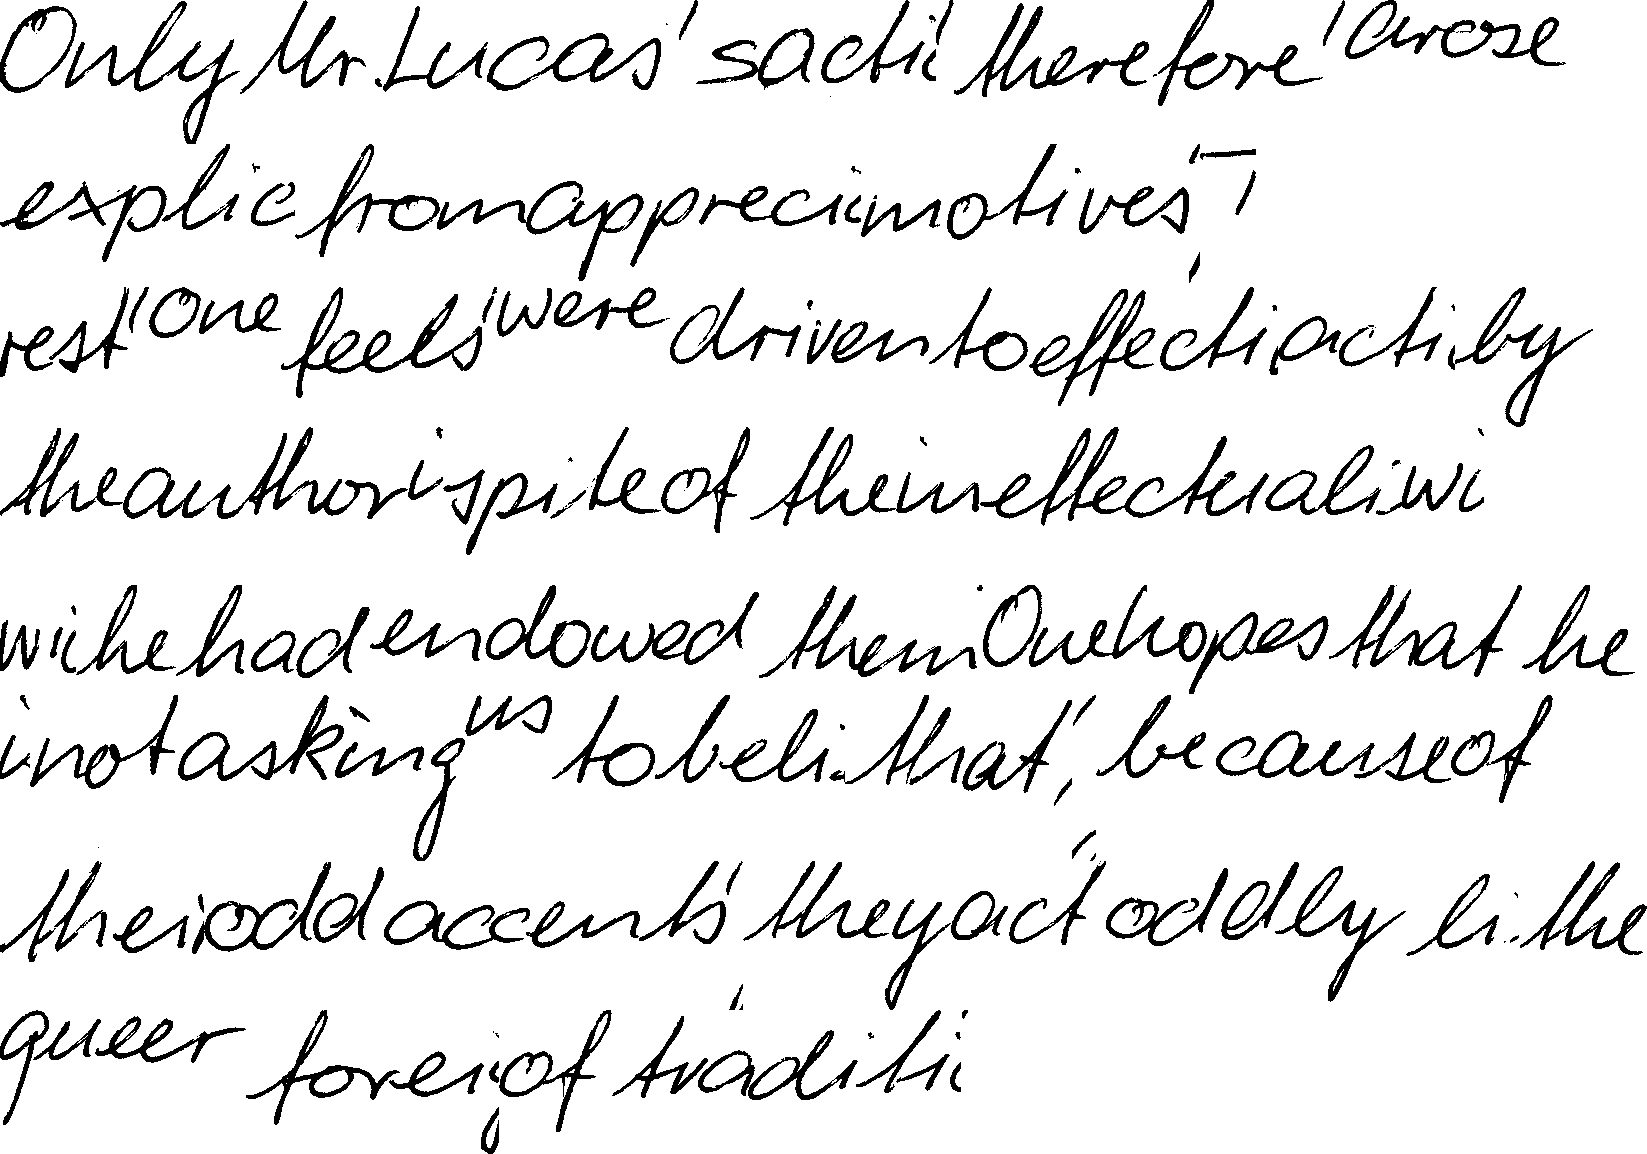 Only Mr. Lucas' s acti therefore' arose
explic from appreci motives, T
rest "One feels" were driven to effecti acti by
the author i spite of the ineffectuali wi
wi he had endowed them One hopes that he
i not asking us to beli. that, because of
thei odd accents they act oddly li. the
queer forei of traditi